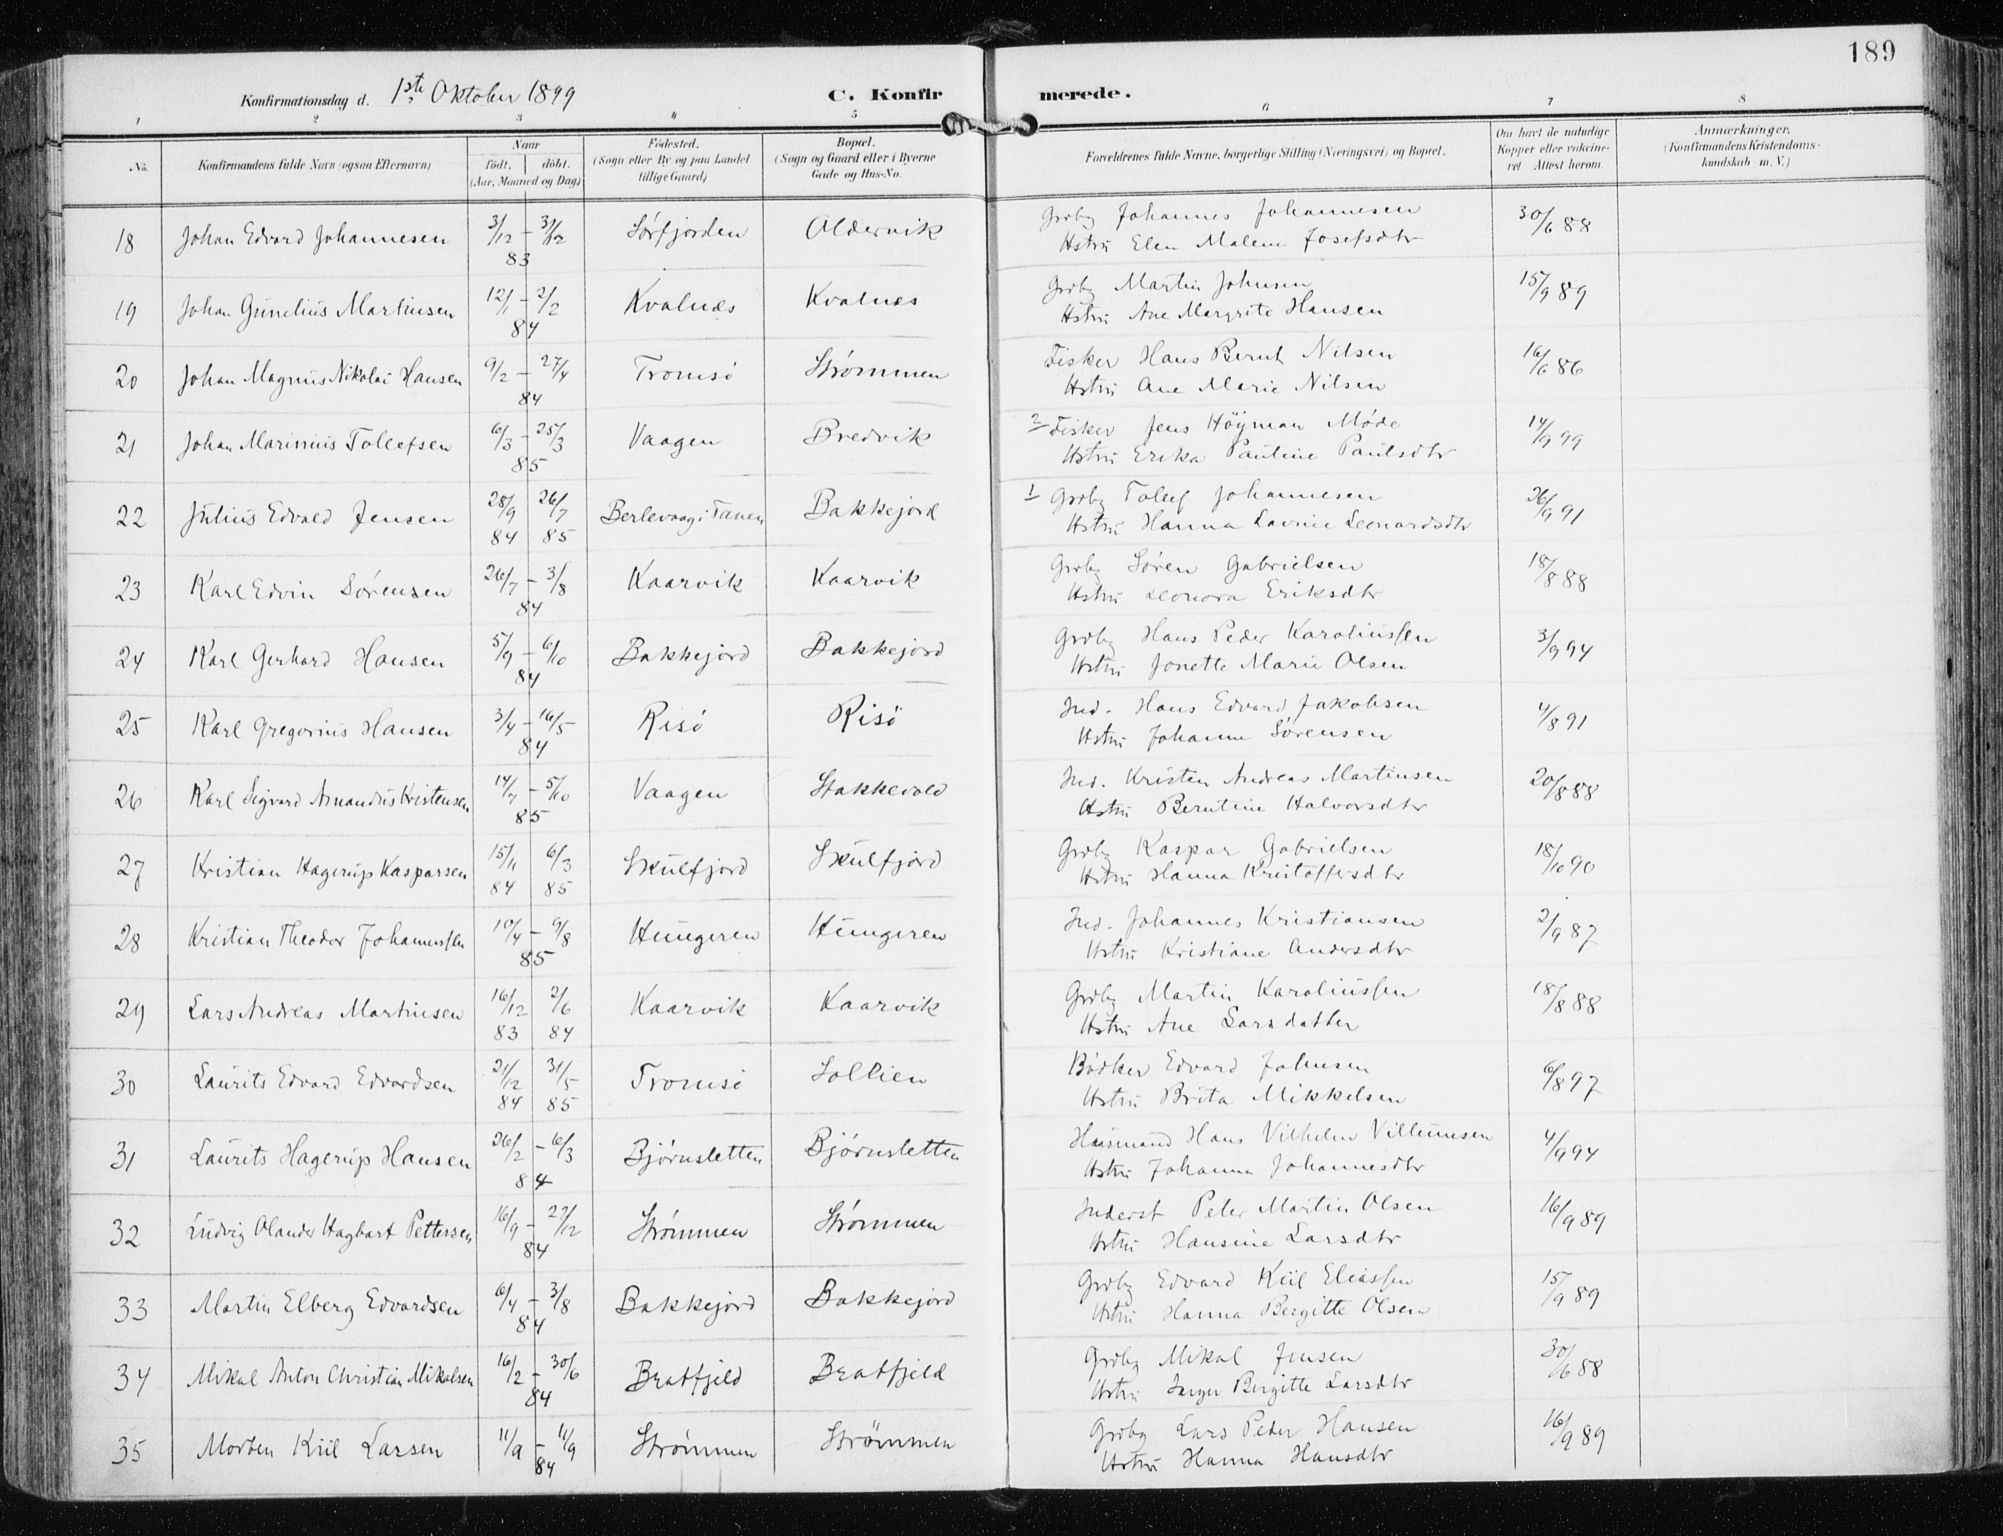 189
Konfirmationsdag d. 1ste Oktober 1899 C. Konfirmerede.
1 2 3 4 5 6 7 8
No. Konfirmandens fulde Navn (ogsaa Efternavn) Naar født. døbt. (Aar, Maaned og Dag) Fødested. (Sogn eller By og paa Landet tillige Gaard) Bopæl. (Sogn og Gaard eller i Byerne Gade og Hus-No. Forældrenes fulde Navne, borgerlige Stilling (Næringsvei) og Bopæl. Om havt de naturlige Kopper eller vakcineret Attest herom. Anmærkninger. (Konfirmandens Kristendomskundskab m. V.)
18 Johan Edvard Johannesen 3/12 – 31/12 83 Sørfjorden Oldervik Grdbr Johannes Johannesen 30/6 88
Hstru Elen Malene Josefsdtr
19 Johan Gunelius Martinsen 12/1 – 2/2 84 Kvalnæs Kvalnæs Grdbr Martin Johnsen 15/9 89
Hstru Ane Margrete Hansen
20 Johan Magnus Nikolai Hansen 9/2 – 27/4 84 Tromsö Strømmen Fisker Hans Bernt Nilsen 16/6 86
Hstru Ane Marie Nilsen
21 Johan Marinius Tollefsen 6/3 – 25/3 85 Vaagen Bredvik 2 Fisker Jens Höyman Møde 14/9 99
Hstru Erika Pauline Paulsdtr
22 Julius Edvald Jensen 28/9 84 26/7 85 Berlevaag i Tanen Bakkejord 1 Grdbr Tolef Johannesen 26/9 91
Hstru Hanna Lavine Leonardsdtr
23 Karl Edvin Sørensen 26/7 – 3/8 84 Kaarvik Kaarvik Grdbr Søren Gabrielsen 18/8 88
Hstru Leonora Eriksdtr
24 Karl Gerhard Hansen 5/9 – 6/10 84 Bakkejord Bakkejord Grdbr Hans Peder Karoliussen 3/9 94
Hstru Jonette Marie Olsen
25 Karl Gregorius Hansen 3/4 – 16/5 84 Risö Risö Ind. Hans Edvard Jakobsen 4/8 91
Hstru Johanne Sørensen
26 Karl Sigvard Amandus Kristensen 14/7 – 5/10 85 Vaagen Stakkevold Ind. Kristen Andreas Martinsen 20/8 88
Hstru Berntine Halvorsdtr
27 Kristian Hagerup Kasparsen 15/11 84 6/3 85 Skulfjord Skulfjord Grdbr Kaspar Gabrielsen 18/10 90
Hstru Hanna Kristoffersdtr
28 Kristian Theodor Johannessen 10/4 – 9/8 85 Hungeren Hungeren Ind. Johannes Kristiansen 2/9 87
Hstru Kristiane Andersdtr
29 Lars Andreas Martinsen 16/12 83 2/6 84 Kaarvik Kaarvik Grdbr Martin Karoliussen 18/8 88
Hstru Ane Larsdatter
30 Laurits Edvard Edvardsen 21/12 84 31/5 85 Tromsö Sollien Bødker Edvard Johnsen 6/8 97
Hstru Brita Mikkelsen
31 Laurits Hagerup Hansen 26/2 – 6/3 84 Bjørnsletten Bjørnsletten Husmand Hans Vilhelm Villumsen 4/9 94
Hstru Johanna Johannesdtr
32 Ludvig Olander Hagbart Pettersen 16/9 – 27/12 84 Strømmen Strømmen Inderst Peter Martin Olsen 16/9 89
Hstru Hansine Larsdtr
33 Martin Elberg Edvardsen 6/4 – 3/8 84 Bakkejord Bakkejord Grdbr Edvard Kiil Eliassen 15/9 89
Hstru Hanna Bergitte Olsen
34 Mikal Anton Christian Mikalsen 16/2 – 30/6 84 Bratfjeld Bratfjeld Grdbr Mikal Jensen 30/6 88
Hstru Inger Bergitte Larsdtr
35 Morten Kiil Larsen 11/9 – 11/9 84 Strømmen Strömmen Grdbr Lars Peder Hansen 16/9 89
Hstru Hanna Hansdtr